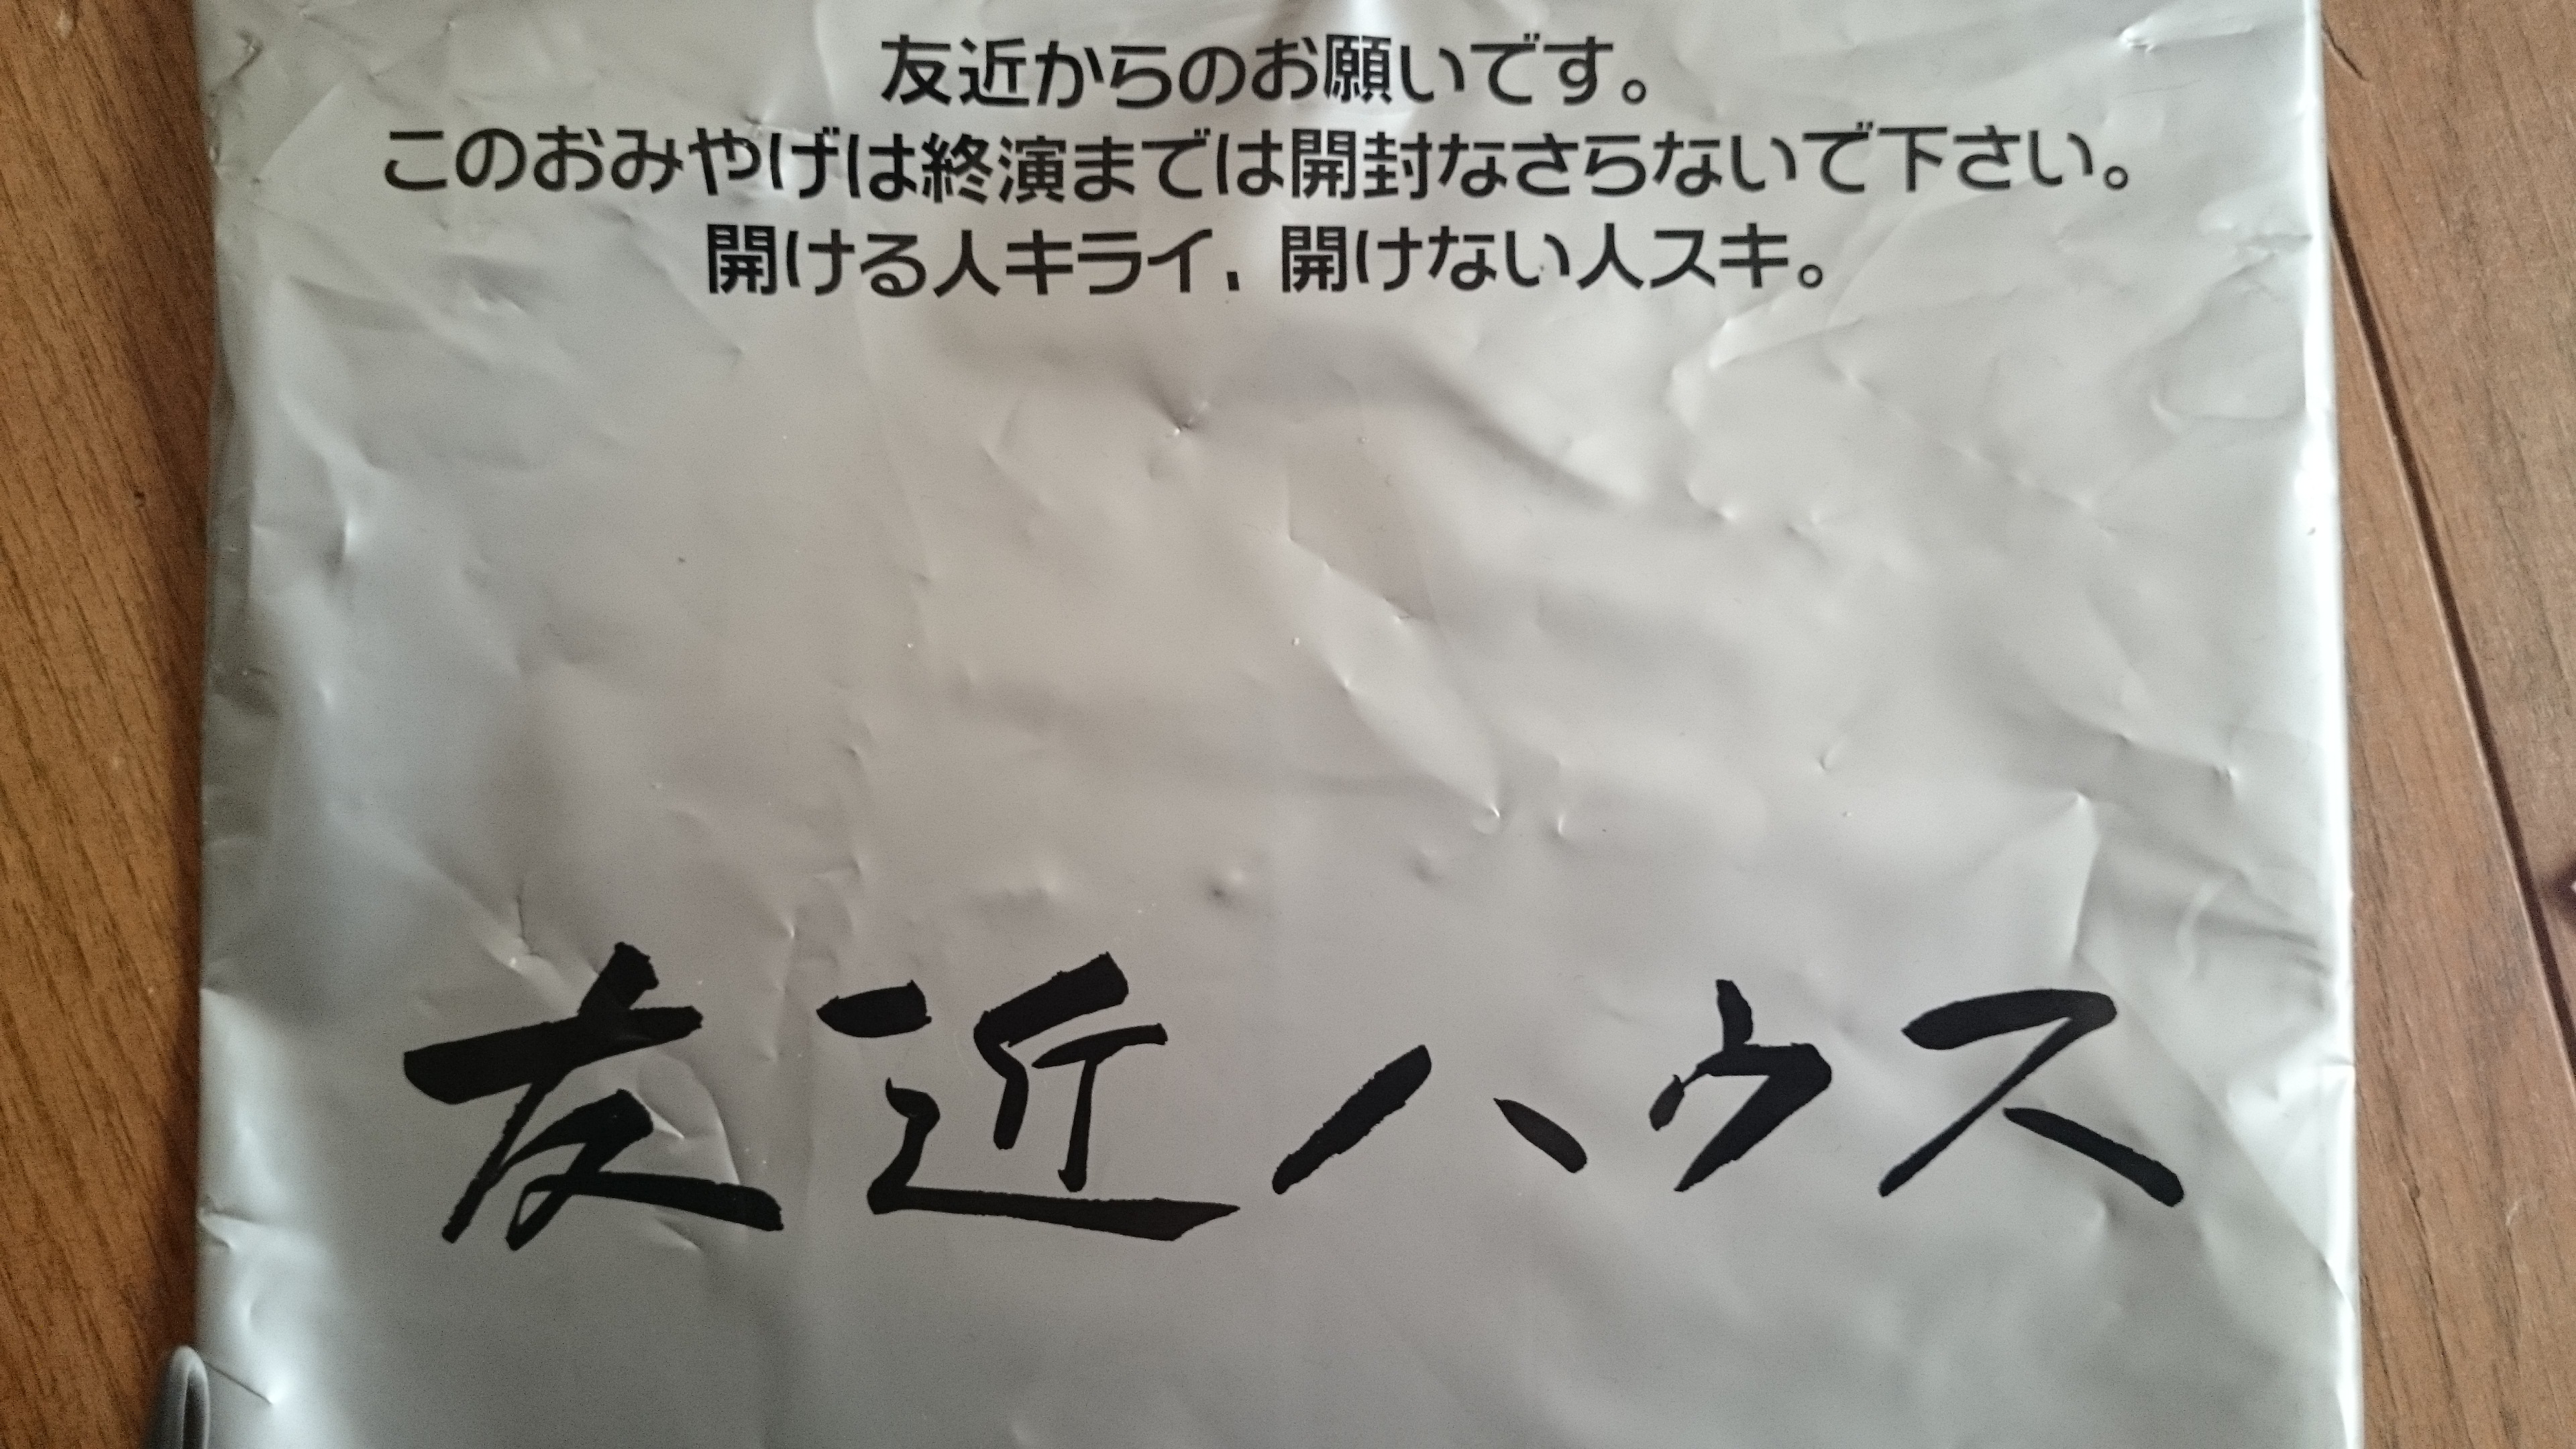 友近からのお願いです。
このおみやげは終演までは開封なさらないで下さい。
開ける人キライ、開けない人スキ。
友近ハウス